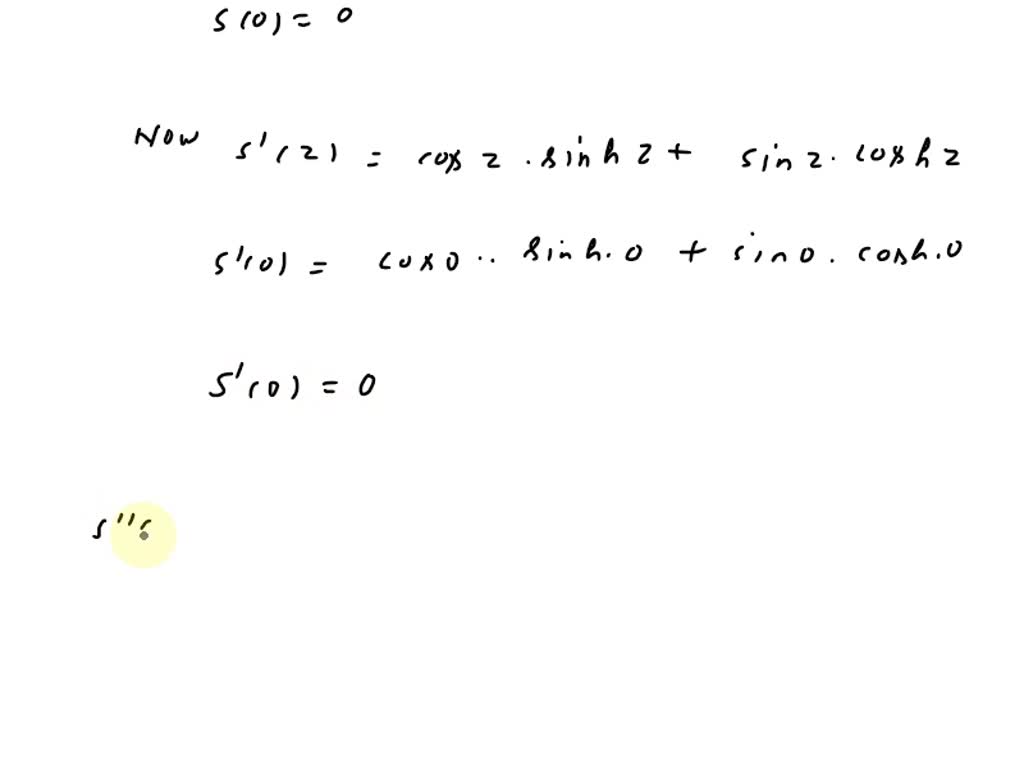 S(0) = 0
Now S'(z) = cos z . sinh z + sin z . cosh z
S'(0) = cos 0 .. sinh.0 + sin 0 . cosh.0
S'(0) = 0
S''(